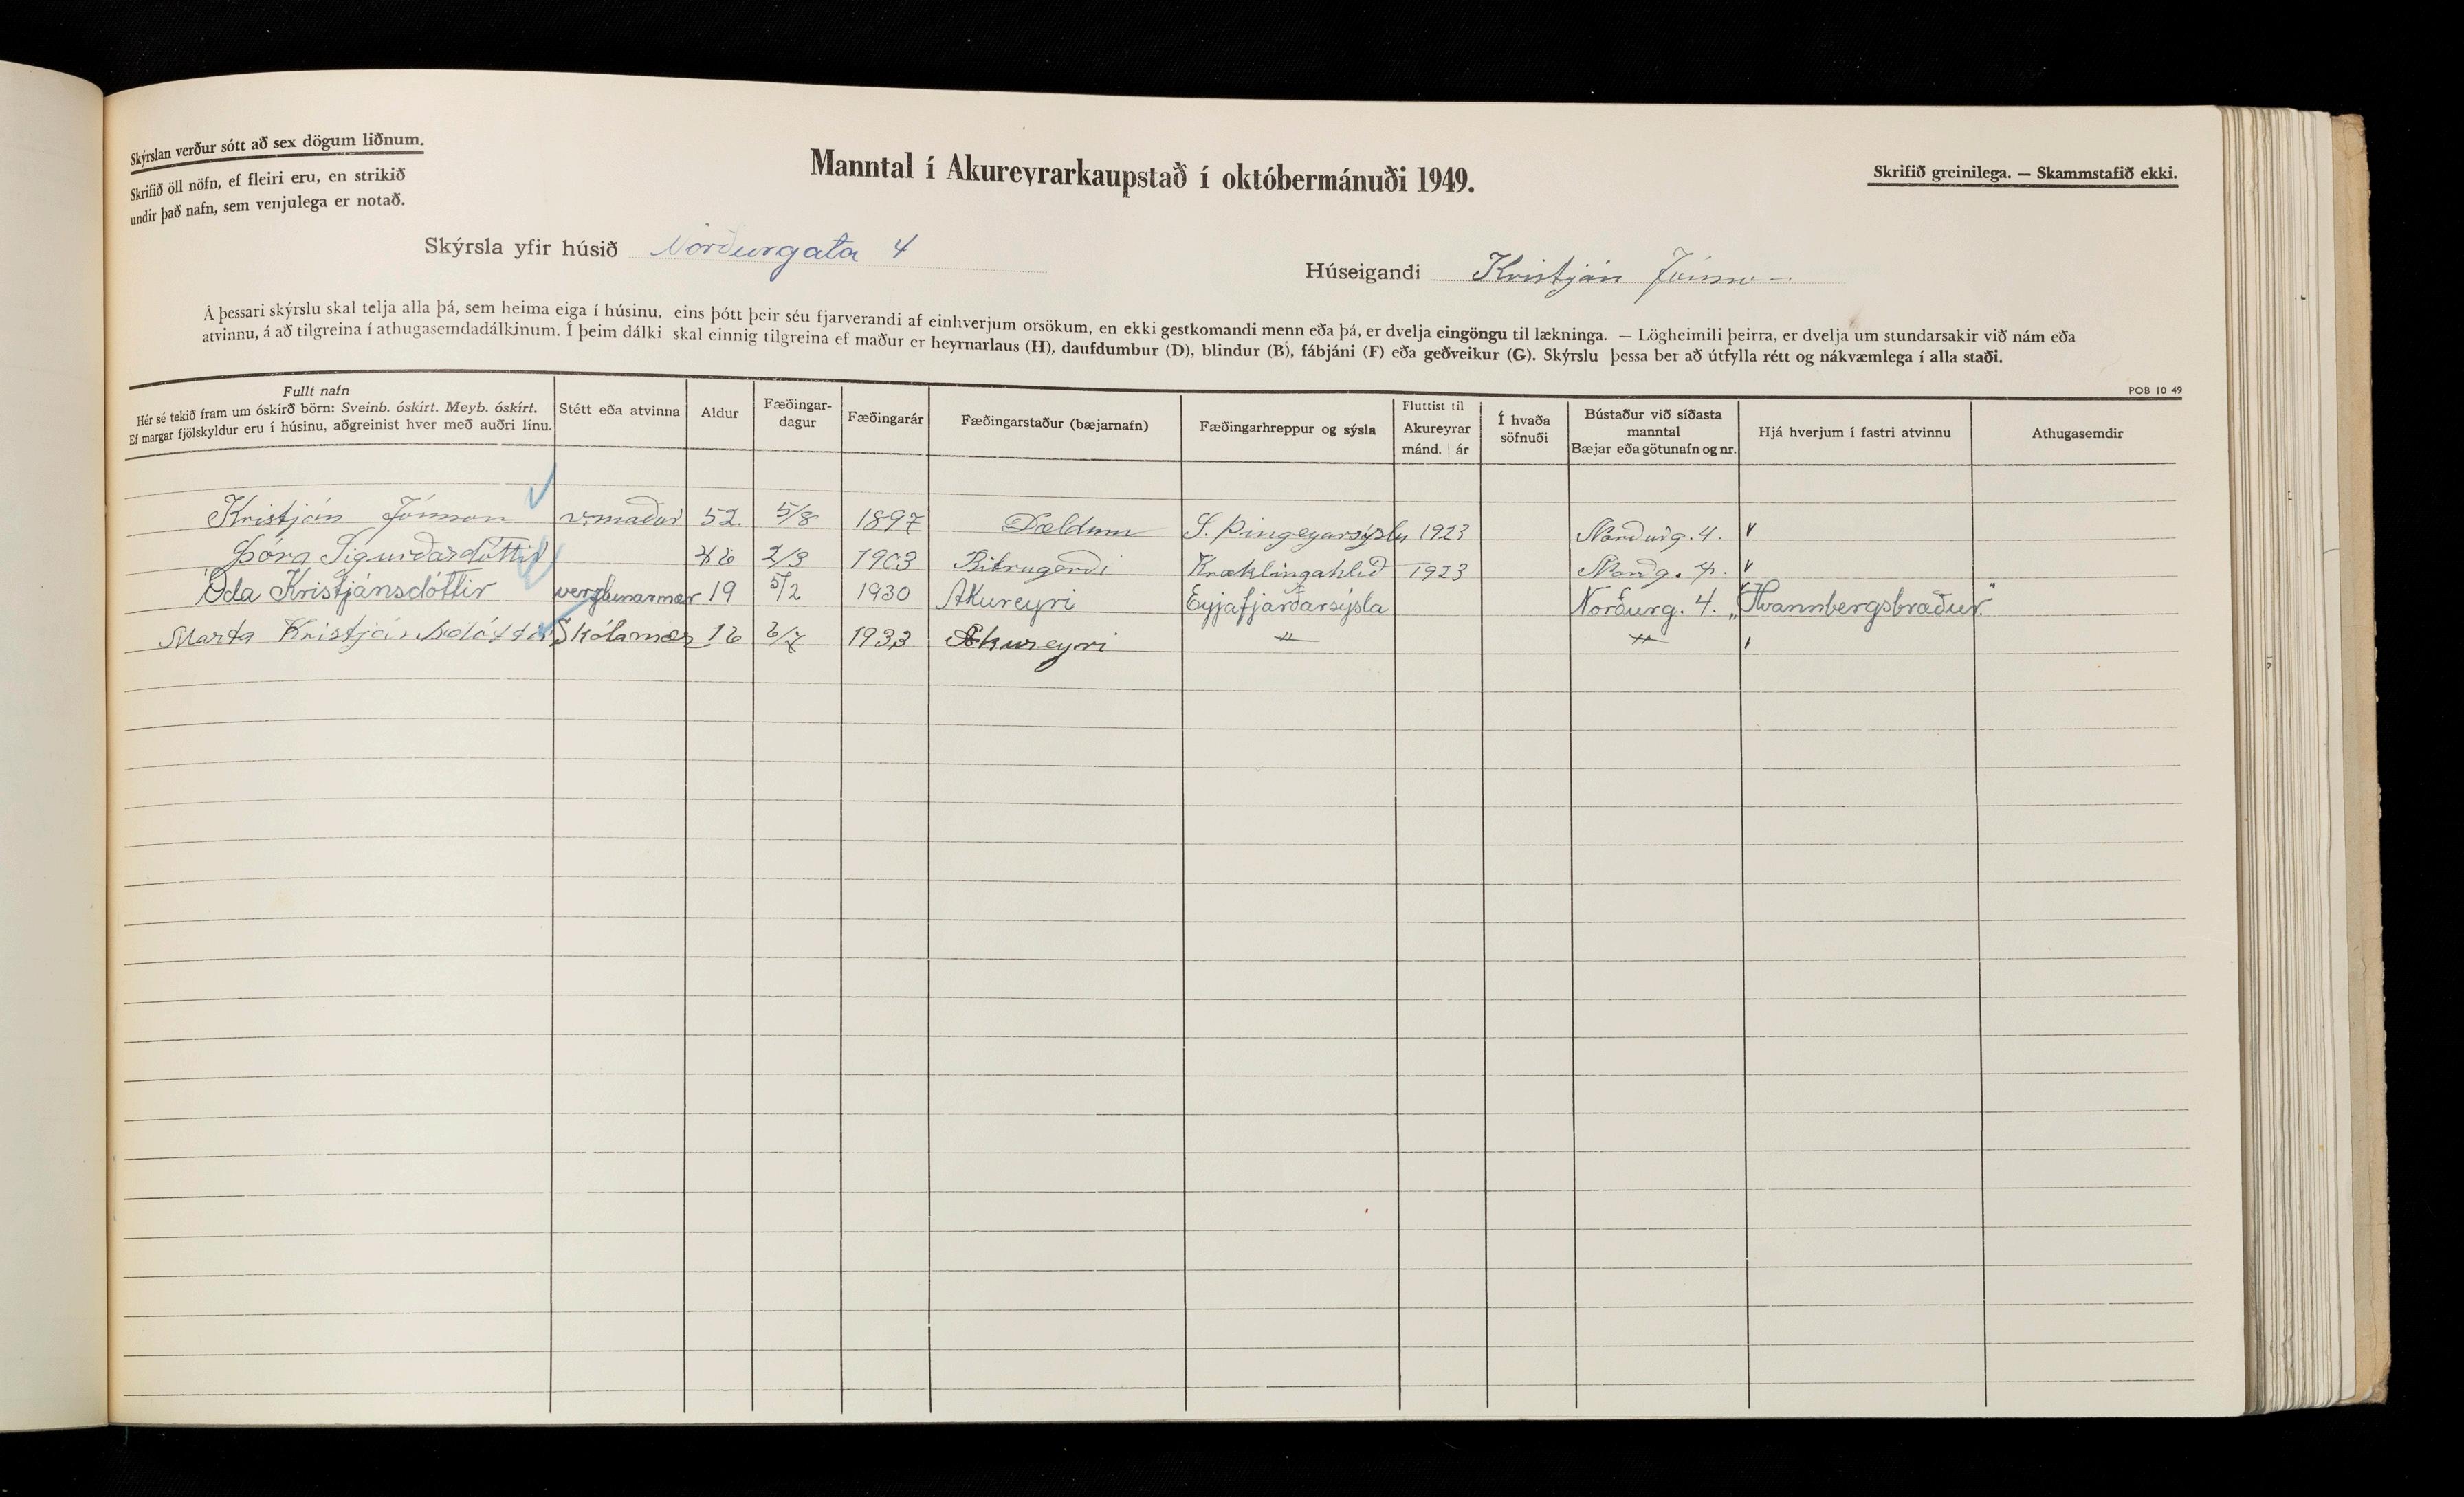 Skýrslan verður sótt að sex dögum liðnum.
Skrifið öll nöfn, ef fleiri eru, en strikið
undir það nafn, sem venjulega er notað.
Manntal í Akureyrarkaupstað í októbermánuði 1949.
Skrifið greinilega. — Skammstafið ekki.
Skýrsla yfir húsið Norðurgata 4
Húseigandi Kristján Jónsson
Á þessari skýrslu skal telja alla þá, sem heima eiga í húsinu, eins þótt þeir séu fjarverandi af einhverjum orsökum, en ekki gestkomandi menn eða þá, er dvelja eingöngu til lækninga. — Lögheimili þeirra, er dvelja um stundarsakir við nám eða
atvinnu, á að tilgreina í athugasemdadálkinum. Í þeim dálki skal einnig tilgreina ef maður er heyrnarlaus (H), daufdumbur (D), blindur (B), fábjáni (F) eða geðveikur (G). Skýrslu þessa ber að útfylla rétt og nákvæmlega í alla staði.
POB 10 49
Fullt nafn
Hér sé tekið fram um óskírð börn: Sveinb. óskírt. Meyb. óskírt.
Ef margar fjölskyldur eru í húsinu, aðgreinist hver með auðri línu.
Stétt eða atvinna
Aldur
Fæðingar-
dagur
Fæðingarár
Fæðingarstaður (bæjarnafn)
Fæðingarhreppur og sýsla
Fluttist til
Akureyrar
mánd. ár
Í hvaða
söfnuði
Bústaður við síðasta
manntal
Bæjar eða götunafn og nr.
Hjá hverjum í fastri atvinnu
Athugasemdir
Kristján Jónsson v.maður 52. 5/8 1897 Dældum S. Þingeyarsýslu 1923 Norðurg. 4.
Þóra Sigurðardóttir 46 2/3 1903 Bitrugerði Kræklingahlíð 1923 Norðg. 4.
Óda Kristjánsdóttir verzlunarmær 19 5/2 1930 Akureyri Eyjafjarðarsýsla Norðurg. 4. „Hvannbergsbræður."
Marta Kristjánsdóttir Skólamær 16 6/7 1933 Akureyri " "